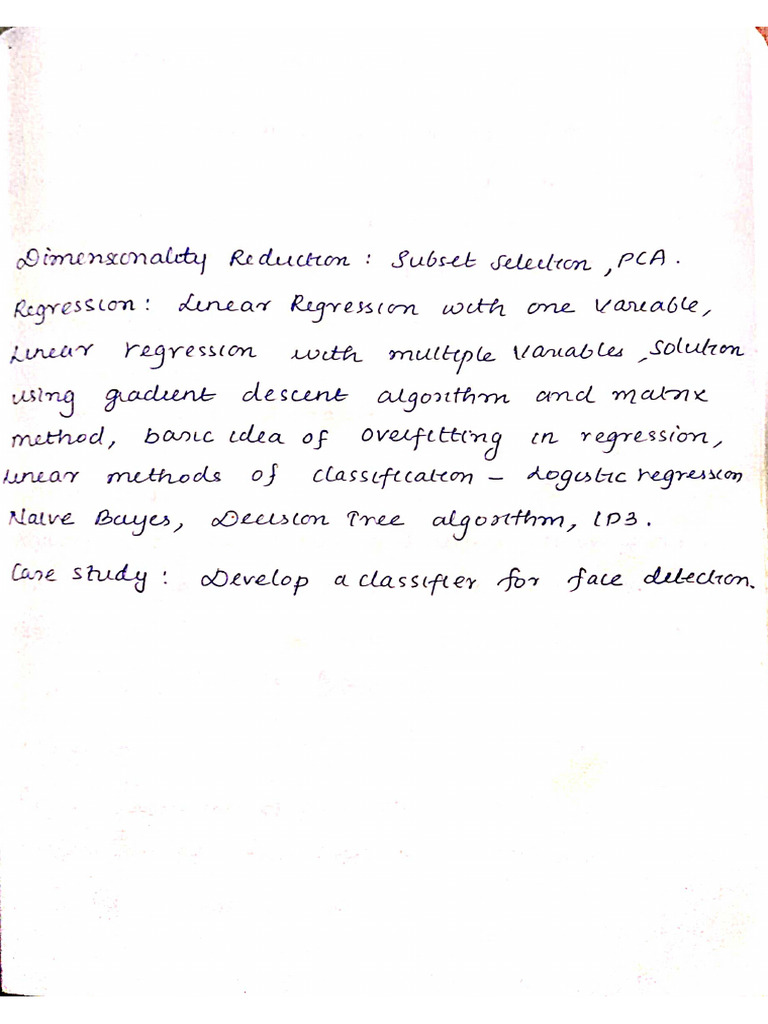 Dimensionality Reduction: Subset Selection, PCA.
Regression: Linear Regression with one Variable,
Linear regression with multiple Variables, Solution
using gradient descent algorithm and matrix
method, basic idea of overfitting in regression,
Linear methods of classification - Logistic regression
Naive Bayes, Decision Tree algorithm, ID3.
Case study: Develop a classifier for face detection.